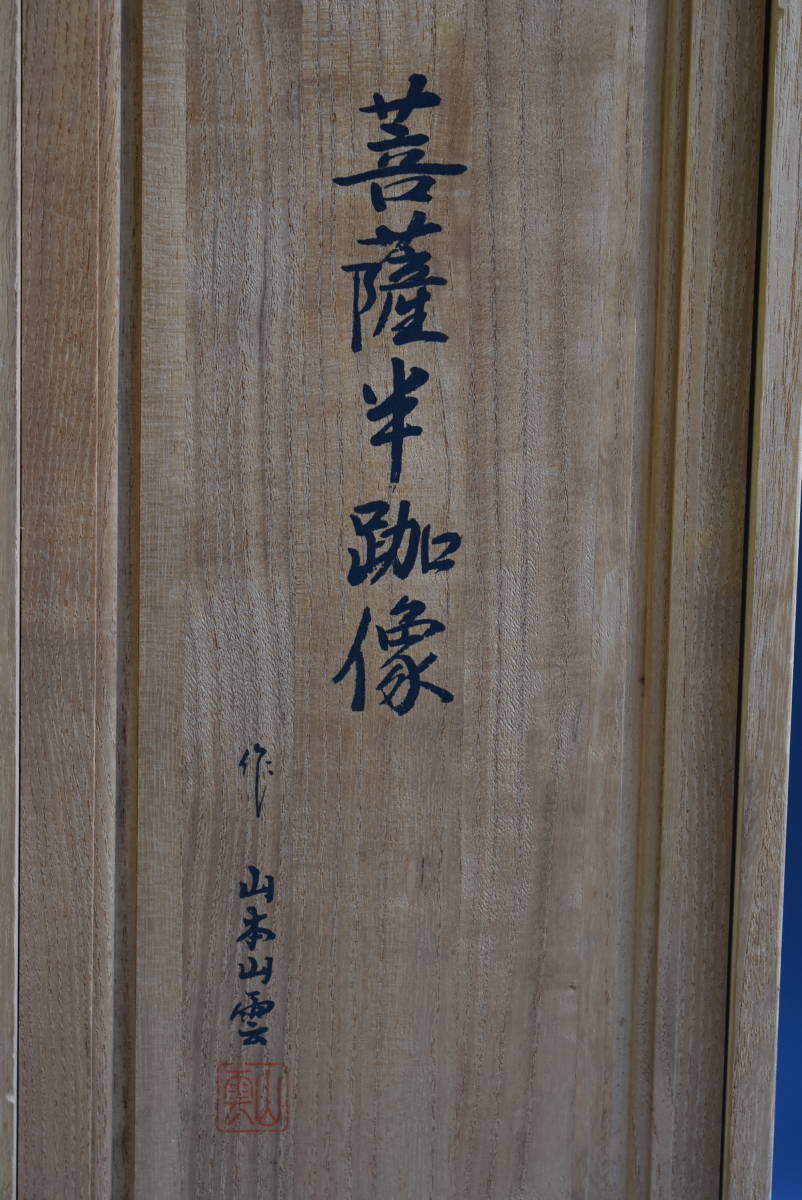 菩薩半跏像
作 山本山雲
山雲